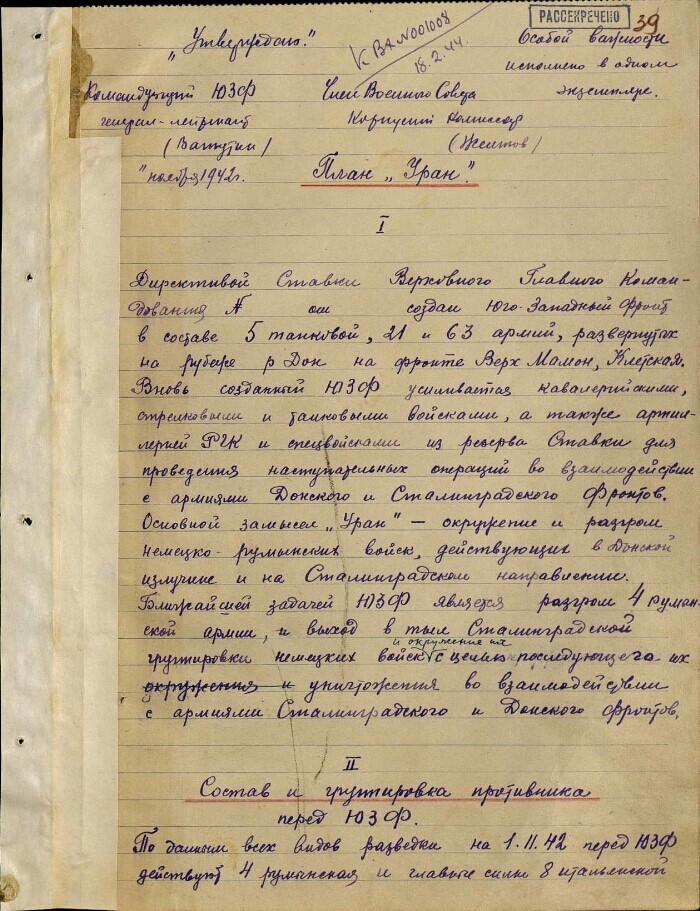 РАССЕКРЕЧЕНО
39
К ВХ N001008
18.2.44.
„Утверждаю."
Особой важности
исполнено в одном
экземпляре.
Командующий ЮЗФ
генерал-лейтенант
(Ватутин)
" ноября 1942г.
Член Военного Совета
Корпусной комиссар
(Желтов)
План „Уран."
I
Директивой Ставки Верховного Главного Коман-
дования № от создан Юго-Западный фронт
в составе 5 танковой, 21 и 63 армий, развернутых
на рубеже р Дон на фронте Верх Мамон, Клетская.
Вновь созданный ЮЗФ усиливается кавалерийскими,
стрелковыми и танковыми войсками, а также артил-
лерией РГК и спецвойсками из резерва Ставки для
проведения наступательных операций во взаимодействии
с армиями Донского и Сталинградского Фронтов.
Основной замысел „Уран" – окружение и разгром
немецко-румынских войск, действующих в Донской
излучине и на Сталинградском направлении.
Ближайшей задачей ЮЗФ является разгром 4 румын-
ской армии, и выход в тыл Сталинградской
группировки немецких войск и окружение их с целью последующего их
окружения и уничтожения во взаимодействии
с армиями Сталинградского и Донского фронтов.
II
Состав и группировка противника
перед ЮЗФ.
По данным всех видов разведки на 1.11.42 перед ЮЗФ
действуют 4 румынская и главные силы 8 итальянской